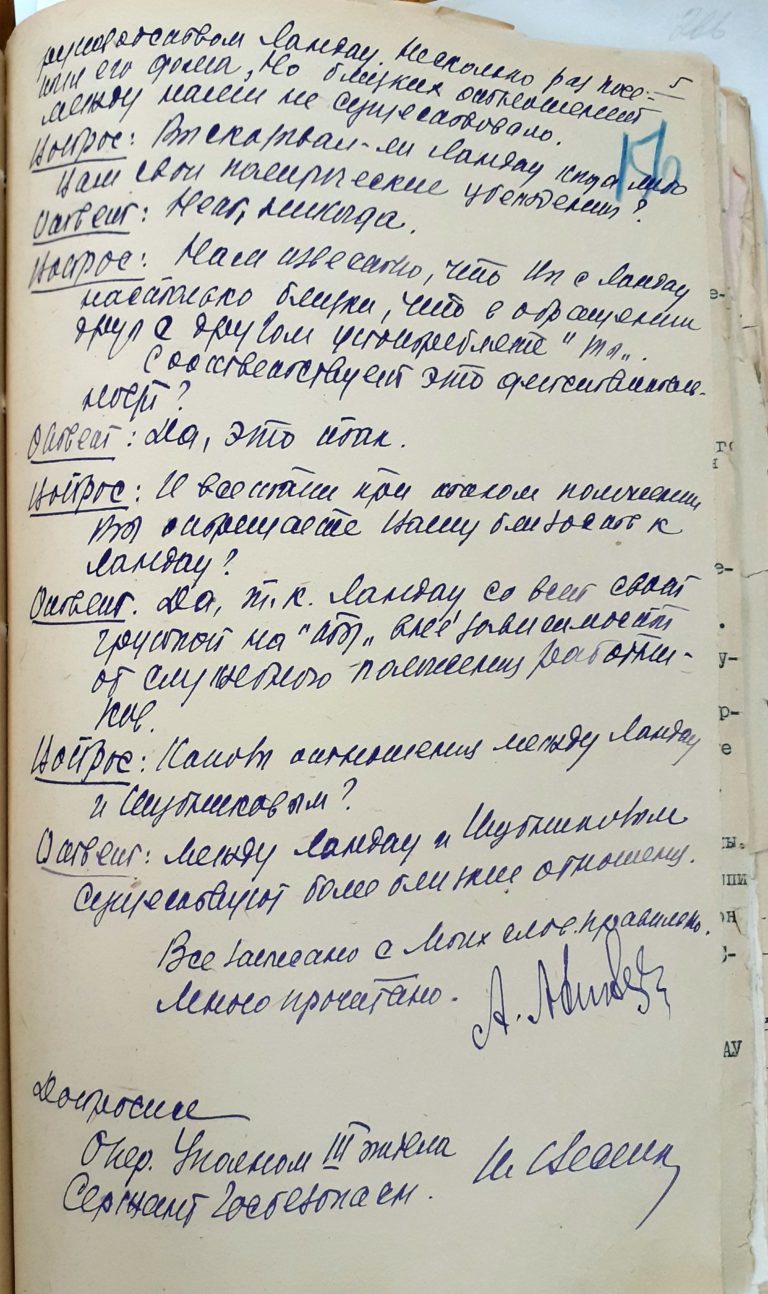 руководством Ландау. Несколько раз посе- 5
тил его дома, но близких отношений
между нами не существовало.
Вопрос: Высказывал-ли Ландау когда либо
Вам свои политические убеждения?
Ответ: Нет, никогда.
Вопрос: Нам известно, что Вы с Ландау
настолько близки, что в обращении
друг с другом употребляете "ты".
Соответствует это действитель-
ности?
Ответ: Да, это так.
Вопрос: И всетаки при таком положении
Вы отрицаете Вашу близость к
Ландау?
Ответ. Да, т.к. Ландау со всей своей
группой на "ты", вне зависимости
от служебного положения работни-
ков.
Вопрос: Каковы отношения между Ландау
и Шубниковым?
Ответ: Между Ландау и Шубниковым
существуют более близкие отношения.
Все записано с моих слов правильно.
Мною прочитано.
Допросил
Опер. Уполном III отдела
Сержант Госбезопасн.